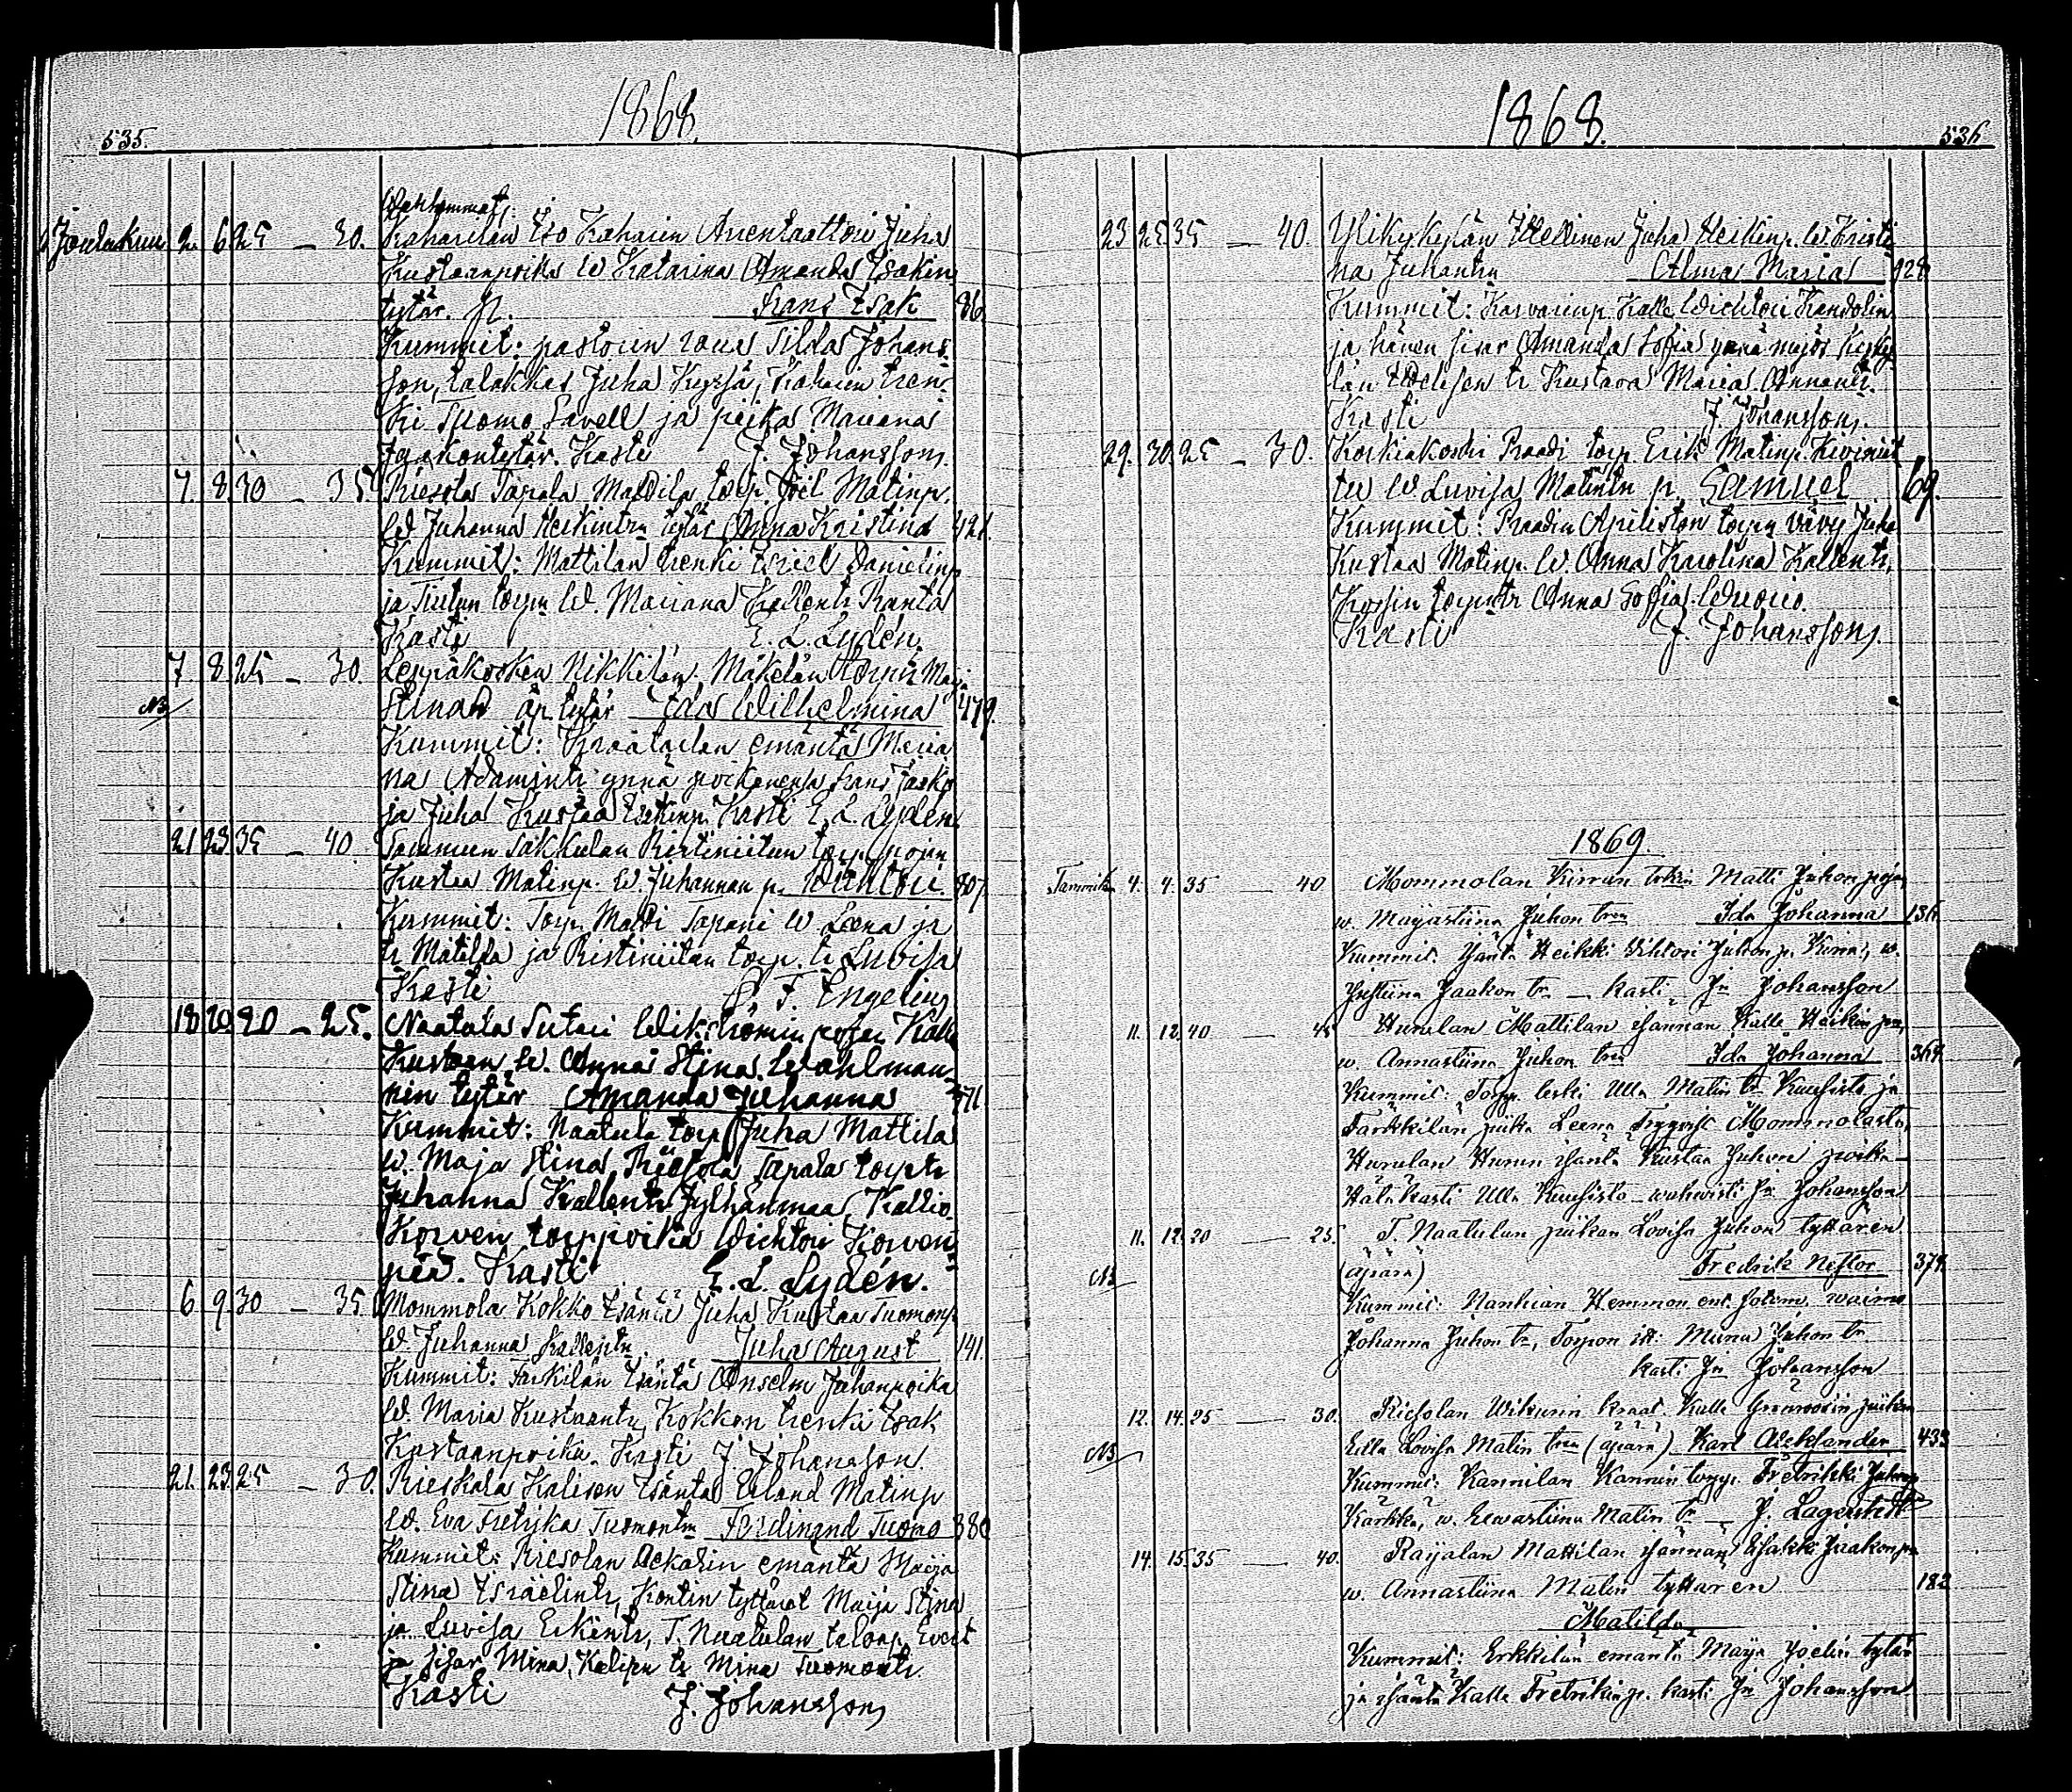 1868.
535.
Wanhemmat:
Joulukuu 2. 6. 25 — 30. Kaharilan Iso Kaharin Arentaattori Juha
Kustaanpoika W Katarina Amanda Isakin
tytär. p. Frans Isak 86.
Kummit: pastorin rova Hilda Johans
son, talokkas Juha Kyrssä, Kaharin tren
ki Tuomo Savell ja piika Mariana
Jaakontytär. Kasti J. Johansson.
7. 8. 30 — 35. Riesola Tapala Mattila torp. Joel Matinp.
W. Juhanna Heikintrn tytär Anna Kristina 421.
Kummit: Mattilan trenki Israel Danielinp
ja torpn W. Mariana Kallentr Ranta
Kasti E. L. Lydén.
7. 8. 25 — 30. Leppäkosken Nikkilän Mäkelän torpn Maja
NB Stinan äp. tytär Ida Wilhelmina 479.
Kummit: emäntä Maria
na Adamintr ynnä poikanensa Frans
ja Juha Kustaa Kasti E. L. Lydén.
21 23. 35 — 40. Sammun Sakkulan Ristiniitun torp. pojan
Kustaa Matinp. W. Juhannan p. Wihtori. 807.
Kummit: Torp. Matti Tapani W Leena ja
tr Matilda ja Ristiniitun torp. tr Luvisa
Kasti F. Engelius
18 20. 20 — 25. Naatula Sutari Wikströmin pojan Kalle
Kustaan W. Anna Stina Wahlman
nin tytär Amanda Juhanna 371
Kummit: Naatula torp Juha Mattila
W. Maja Stina, Riesola Tapala torpntr
Juhanna Kallentr Jylhänmaa, Kallio
Korven torppoika Wichtori Korven
pää. Kasti E. L. Lydén.
6. 9. 30 — 35. Mommola Kokko Isäntä Juha Kustaa Tuomonp
W. Juhanna Kallentr. Juha August 141.
Kummit: Isäntä Anselm Juhanpoika
W. Maria Kustaantr, Kokkon trenki Isak
Kustaanpoika. Kasti J. Johansson.
21. 23. 25 — 30. Rieskala Kalison Isäntä Erland Matinp
W. Eva Fretrika Tuomontrn Ferdinand Tuomo 380
Kummit: Riesolan emäntä Maija
Stina Israelintr, Kontin tyttäret Maija Stina
ja Luvisa Erkintr, T. Naatulan talonp. Evert
ja sisar Mina, tr Mina Tuomontr.
Kasti J. Johansson
1868.
536
23. 25. 35 — 40. Ylikyskylän Itellinen Juha Heikinp. W Kristi
na Juhantrn Alma Maria 928
Kummit: Karvarinp. Kalle Wichtori Kandolin
ja hänen sisar Amanda Sofia ynnä myös
län tr Kustava Maria
Kasti J. Johansson.
29. 30. 25 — 30. Koskiakoski Raadi torp. Erik Matinp. Kiviniit
tu W. Luvisa Matintrn p. Samuel 69.
Kummit: Raadin torpn vävy Juha
Kustaa Matinp. W. Anna Karolina Kallentr,
torpntr Anna Sofia Wuorio.
Kasti J. Johansson.
1869.
Tammik. 4. 4. 35 — 40 Mommolan Kirran Matti Juhon pojan
w. Maijastiina Juhon trn Ida Johanna 136.
Kummit. Isäntä Heikki Wihtori Juhon p. Kirra, w.
Justiina Jaakon tr. — kasti Jn Johansson
11. 12. 40 — 45 Hurulan Mattilan isännän Kalle Heikin pn,
w. Annastiina Juhon trn Ida Johanna 364
Kummit: Torpp. leski Ulla Matin tr Kuusisto ja
Tarkkilan piika Leena Mommolasta,
Hurulan isäntä Kustaa Juhon poika —
Hätäkasti Ulla Kuusisto wahwisti Jn Johansson
11. 12. 20 — 25. T. Naatulan piikan Lovisa Juhon tyttären
NB (äpärä) Fredrik Nestor 374.
Kummit: Hemmon ent. sotam. waimo
Johanna Juhon tr, Torpon itt: Miina Juhon tr
kasti Jn Johansson
12. 14. 25 — 30. Riesolan Kalle piikan
NB Ulla Lovisa Matin trn (äpärä) Karl Aleksander 433
Kummit: Kannilan Kannin torpp. Fretrikki Juhonp.
Kärkkä, w. Eewastiina Matin tr — J. Lagerstedt
14. 15. 35 — 40. Raijalan Mattilan isännän Isakki Jaakon pn
w. Annastiina Matin tyttären 182
Matilda
Kummit: Erkkilän emäntä Maija Joelin tytär
ja isäntä Kalle Fretrikin p. kasti Jn Johansson